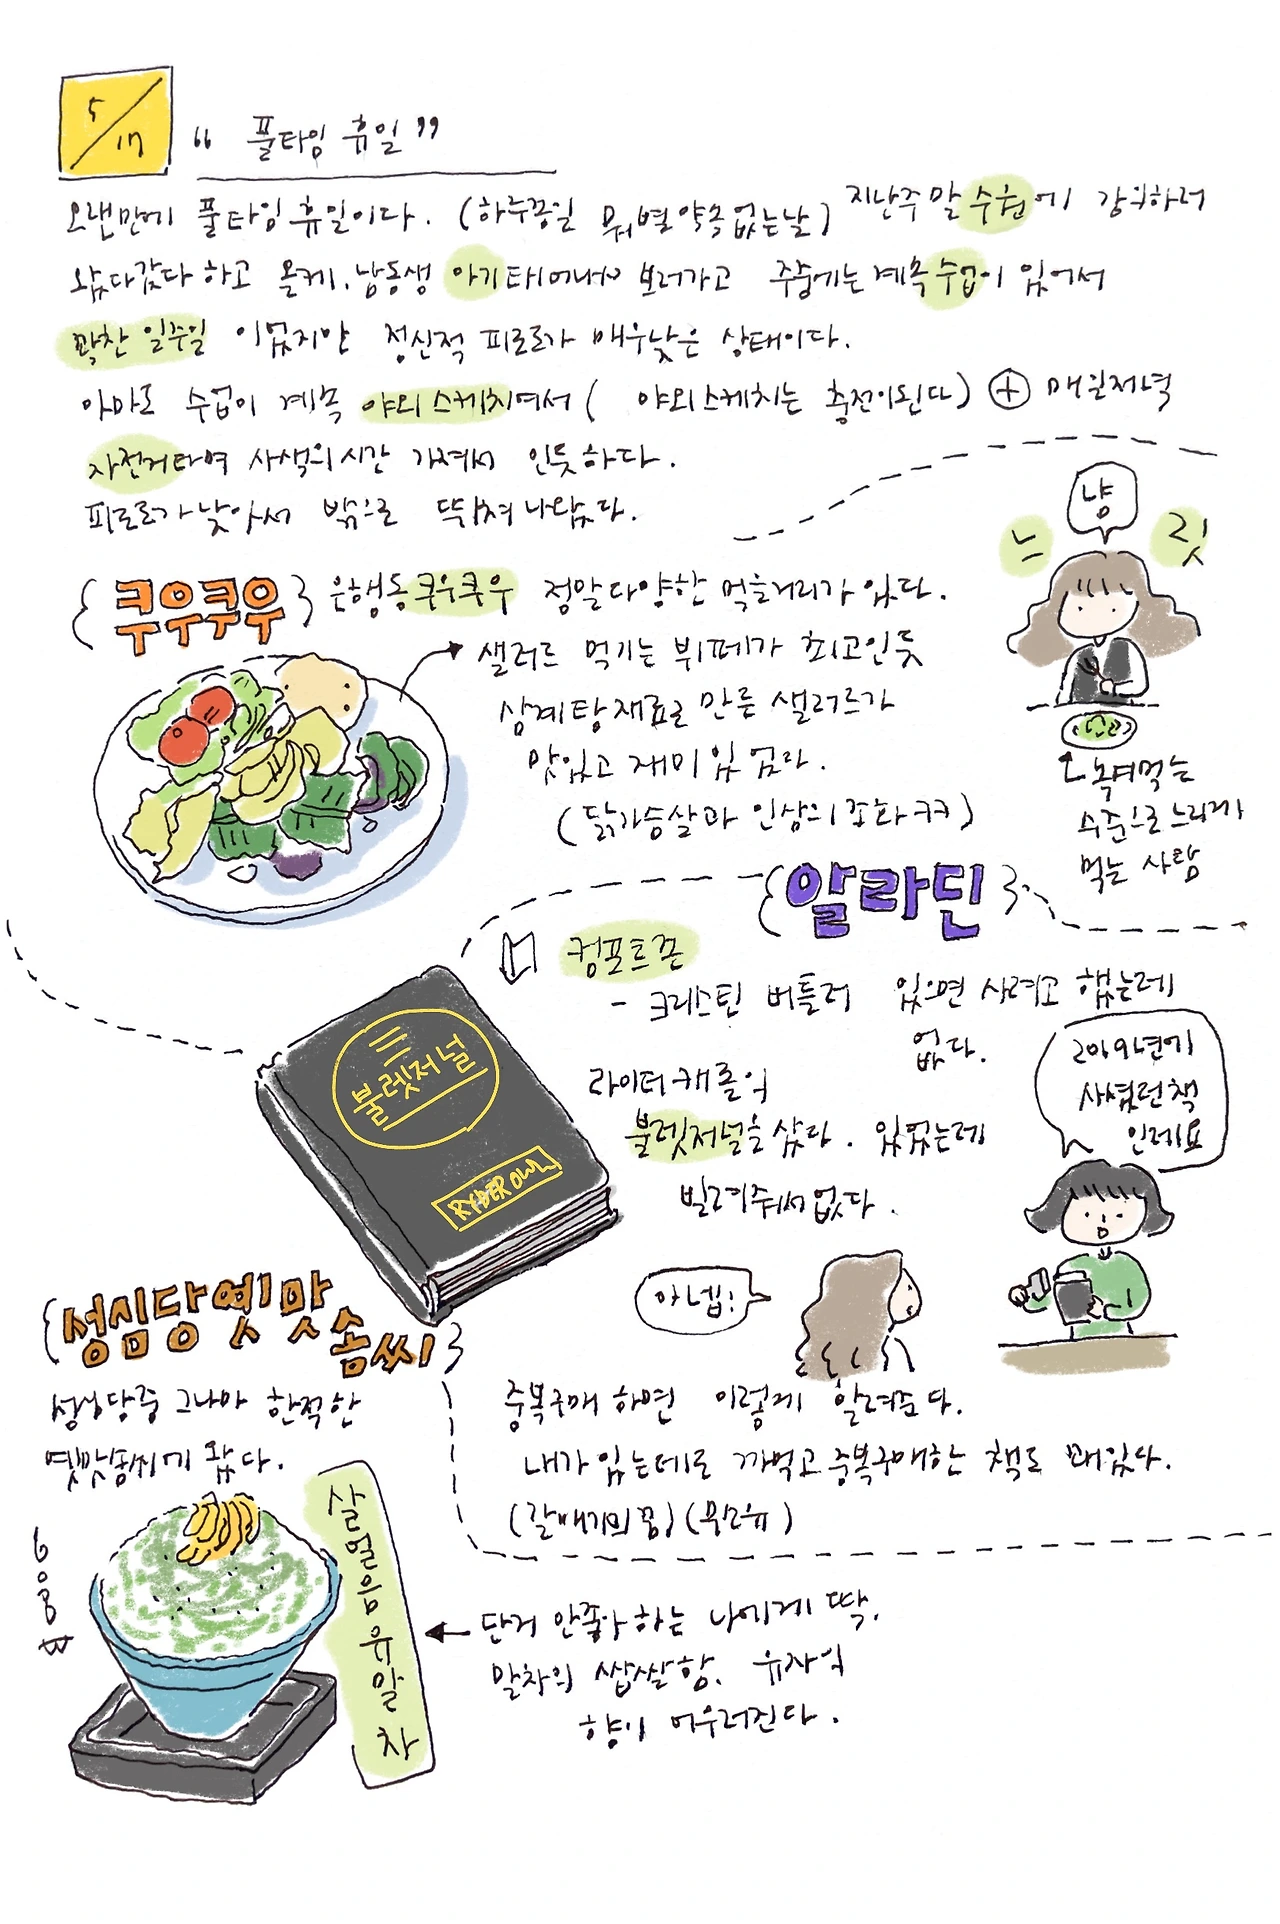 5/17
" 풀타임 휴일 "
오랜만에 풀타임 휴일이다. (하루종일 뭐 별 약속 없는 날) 지난주말 수원에 강의하러
왔다갔다 하고 올케, 남동생 아기 태어나서 보러가고 주중에는 계속 수업이 있어서
꽉찬 일주일 이었지만 정신적 피로가 매우낮은 상태이다.
아마도 수업이 계속 야외스케치여서 ( 야외스케치는 충전이된다) ⊕ 매일저녁
자전거타며 사색의시간 가져서 인듯하다.
피로가낮아서 밖으로 뛰쳐나왔다.
{쿠우쿠우} 은행동 쿠우쿠우 정말다양한 먹을거리가 있다.
샐러드 먹기는 뷔페가 최고인듯
삼계탕재료로 만든 샐러드가
맛있고 재미있었다.
(닭가슴살과 인삼의 조화 ㅋㅋ)
냠
느 릿
녹여먹는
수준으로 느리게
먹는 사람
{알라딘}
컴포트존
- 크리스틴 버틀러 있으면 사려고 했는데
없다.
라이더캐롤의
불렛저널을 샀다. 있었는데
빌려줘서없다.
불렛저널
2019년에
사셨던책
인데요
아넵!
중복구매 하면 이렇게 알려준다.
내가 있는데도 까먹고 중복구매하는 책도 꽤있다.
(갈매기의꿈) (무소유)
{성심당옛맛솜씨}
성심당중 그나마 한적한
옛맛솜씨에 왔다.
살얼음유말차
단거 안좋아하는 나에게 딱.
말차의 쌉쌀함. 유자의
향이 어우러진다.